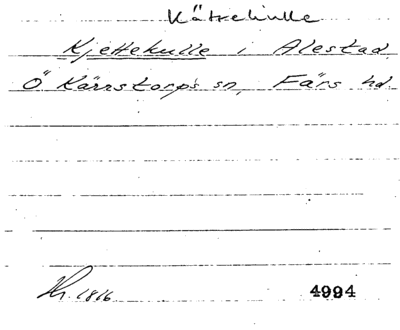 Kättekulle
Kjettekulle i Alestad
Ö Kärrstorps sn, Färs hd.
1816
4994